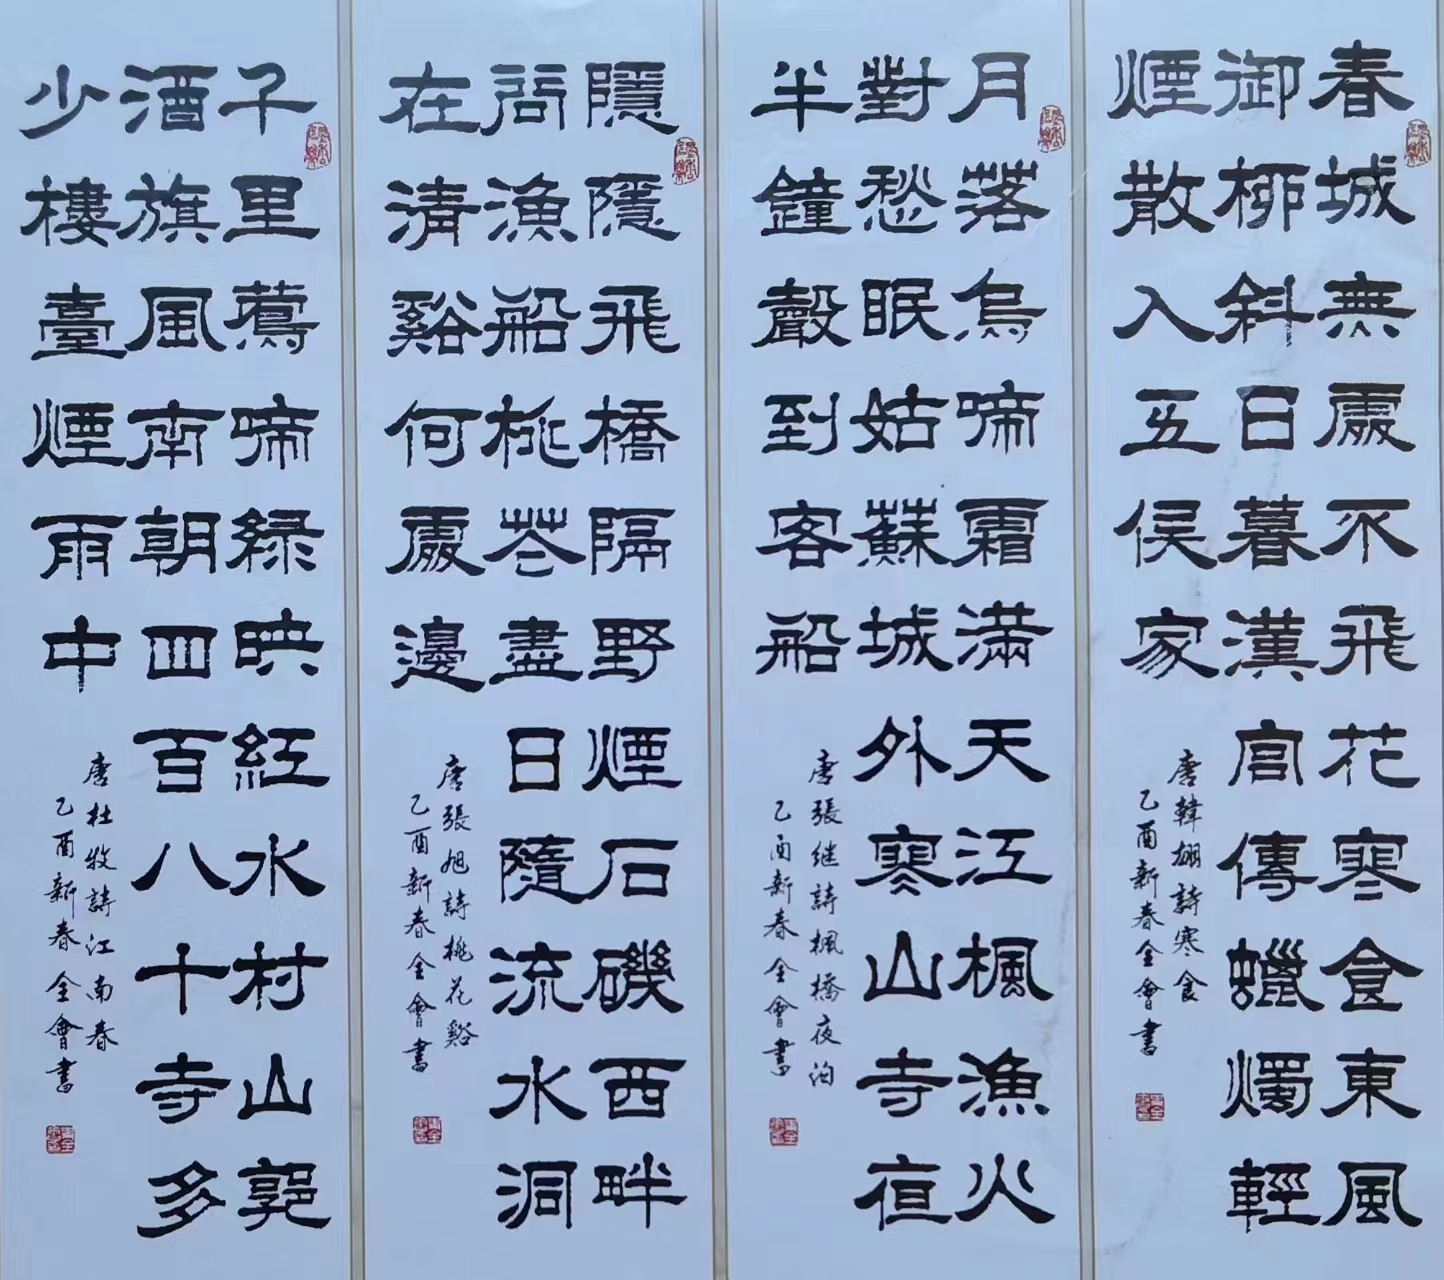 春城無處不飛花寒食東風
御柳斜日暮漢宮傳蠟燭輕
煙散入五侯家
唐韓翃詩寒食
乙酉新春全會書
月落烏啼霜滿天江楓漁火
對愁眠姑蘇城外寒山寺夜
半鐘聲到客船
唐張继詩楓橋夜泊
乙酉新春全會書
隱隱飛橋隔野煙石磯西畔
問漁船桃花盡日隨流水洞
在清谿何處邊
唐張旭詩桃花谿
乙酉新春全會書
千里鶯啼緑映紅水村山郭
酒旗風南朝四百八十寺多
少樓臺煙雨中
唐杜牧詩江南春
乙酉新春全會書